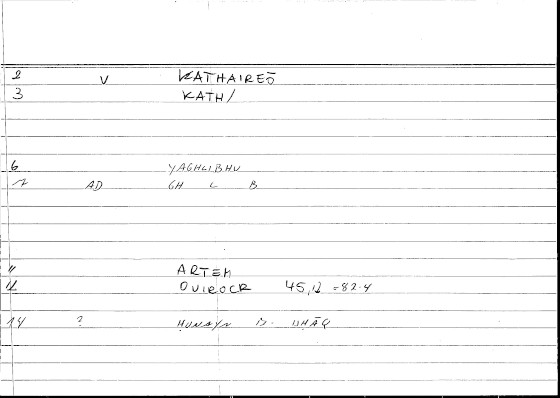 2 V KATHAIREŌ
3 KATH/
6 YAGHLIBHU
7 AD GH L B
11 ARTEM
12 OVIROCR 45,12 = 82.4
14 ? ḤUNAYN B. ISḤĀQ